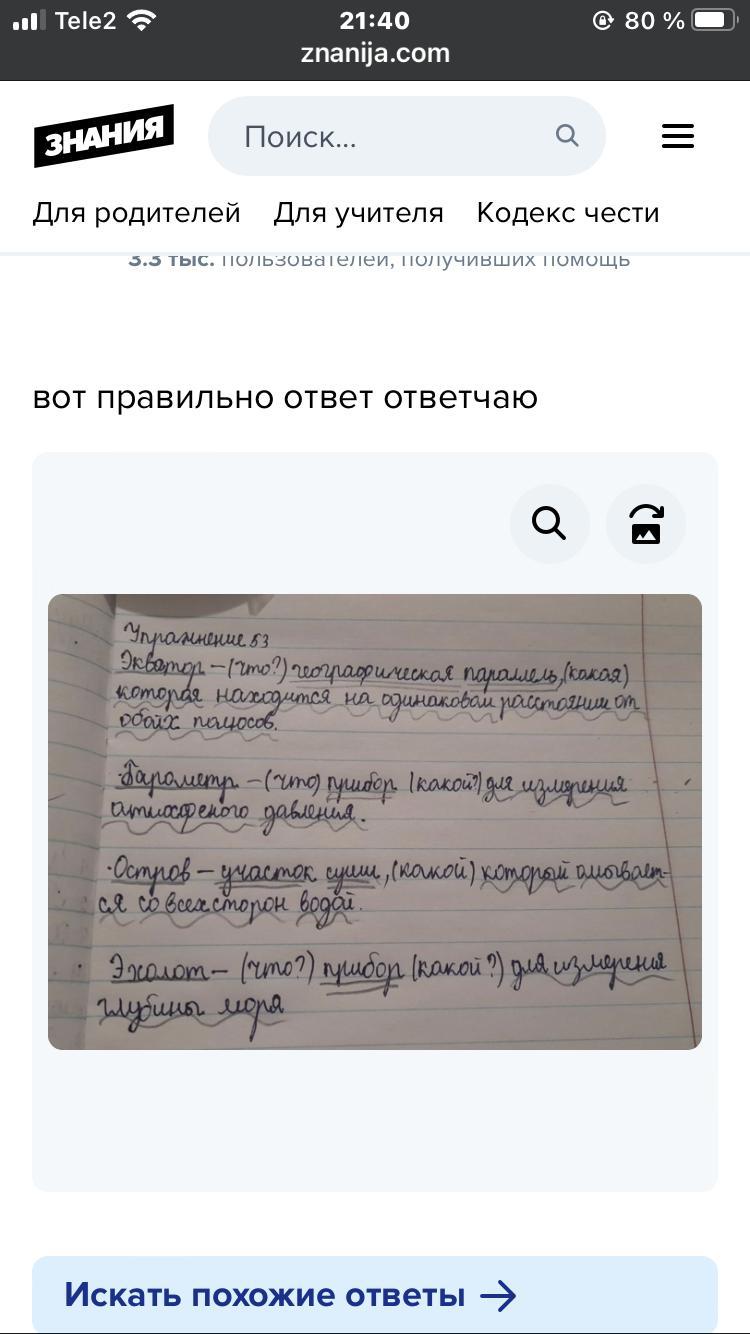 Tele2 21:40 80 %
znanija.com
ЗНАНИЯ Поиск...
Для родителей Для учителя Кодекс чести
3.3 тыс. пользователей, получивших помощь
вот правильно ответ ответчаю
Упражнение 53
Экватор – (что?) географическая параллель, (какая)
которая находится на одинаковом расстоянии от
обоих полюсов.
Барометр – (что) прибор (какой?) для измерения
атмосферного давления.
Остров – участок суши, (какой) который омывает-
ся со всех сторон водой.
Эхолот – (что?) прибор (какой?) для измерения
глубины моря
Искать похожие ответы →